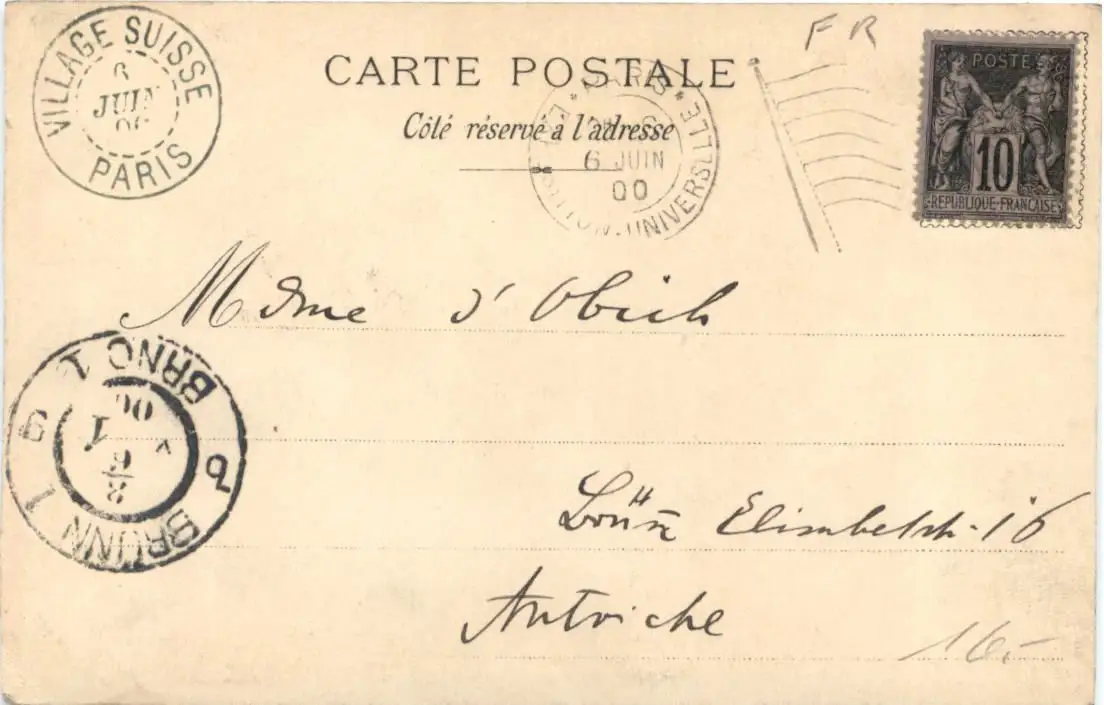 FR
VILLAGE SUISSE
6
JUIN
00
PARIS
CARTE POSTALE
Côté réservé à l'adresse
PARIS
6 JUIN
00
UNIVERSELLE
POSTE
10
REPUBLIQUE FRANÇAISE
Mdme d'Obich
BRÜNN 1
BRNO 1
8
6
00
Brünn Elisabethstr. 16
Autriche
16.-